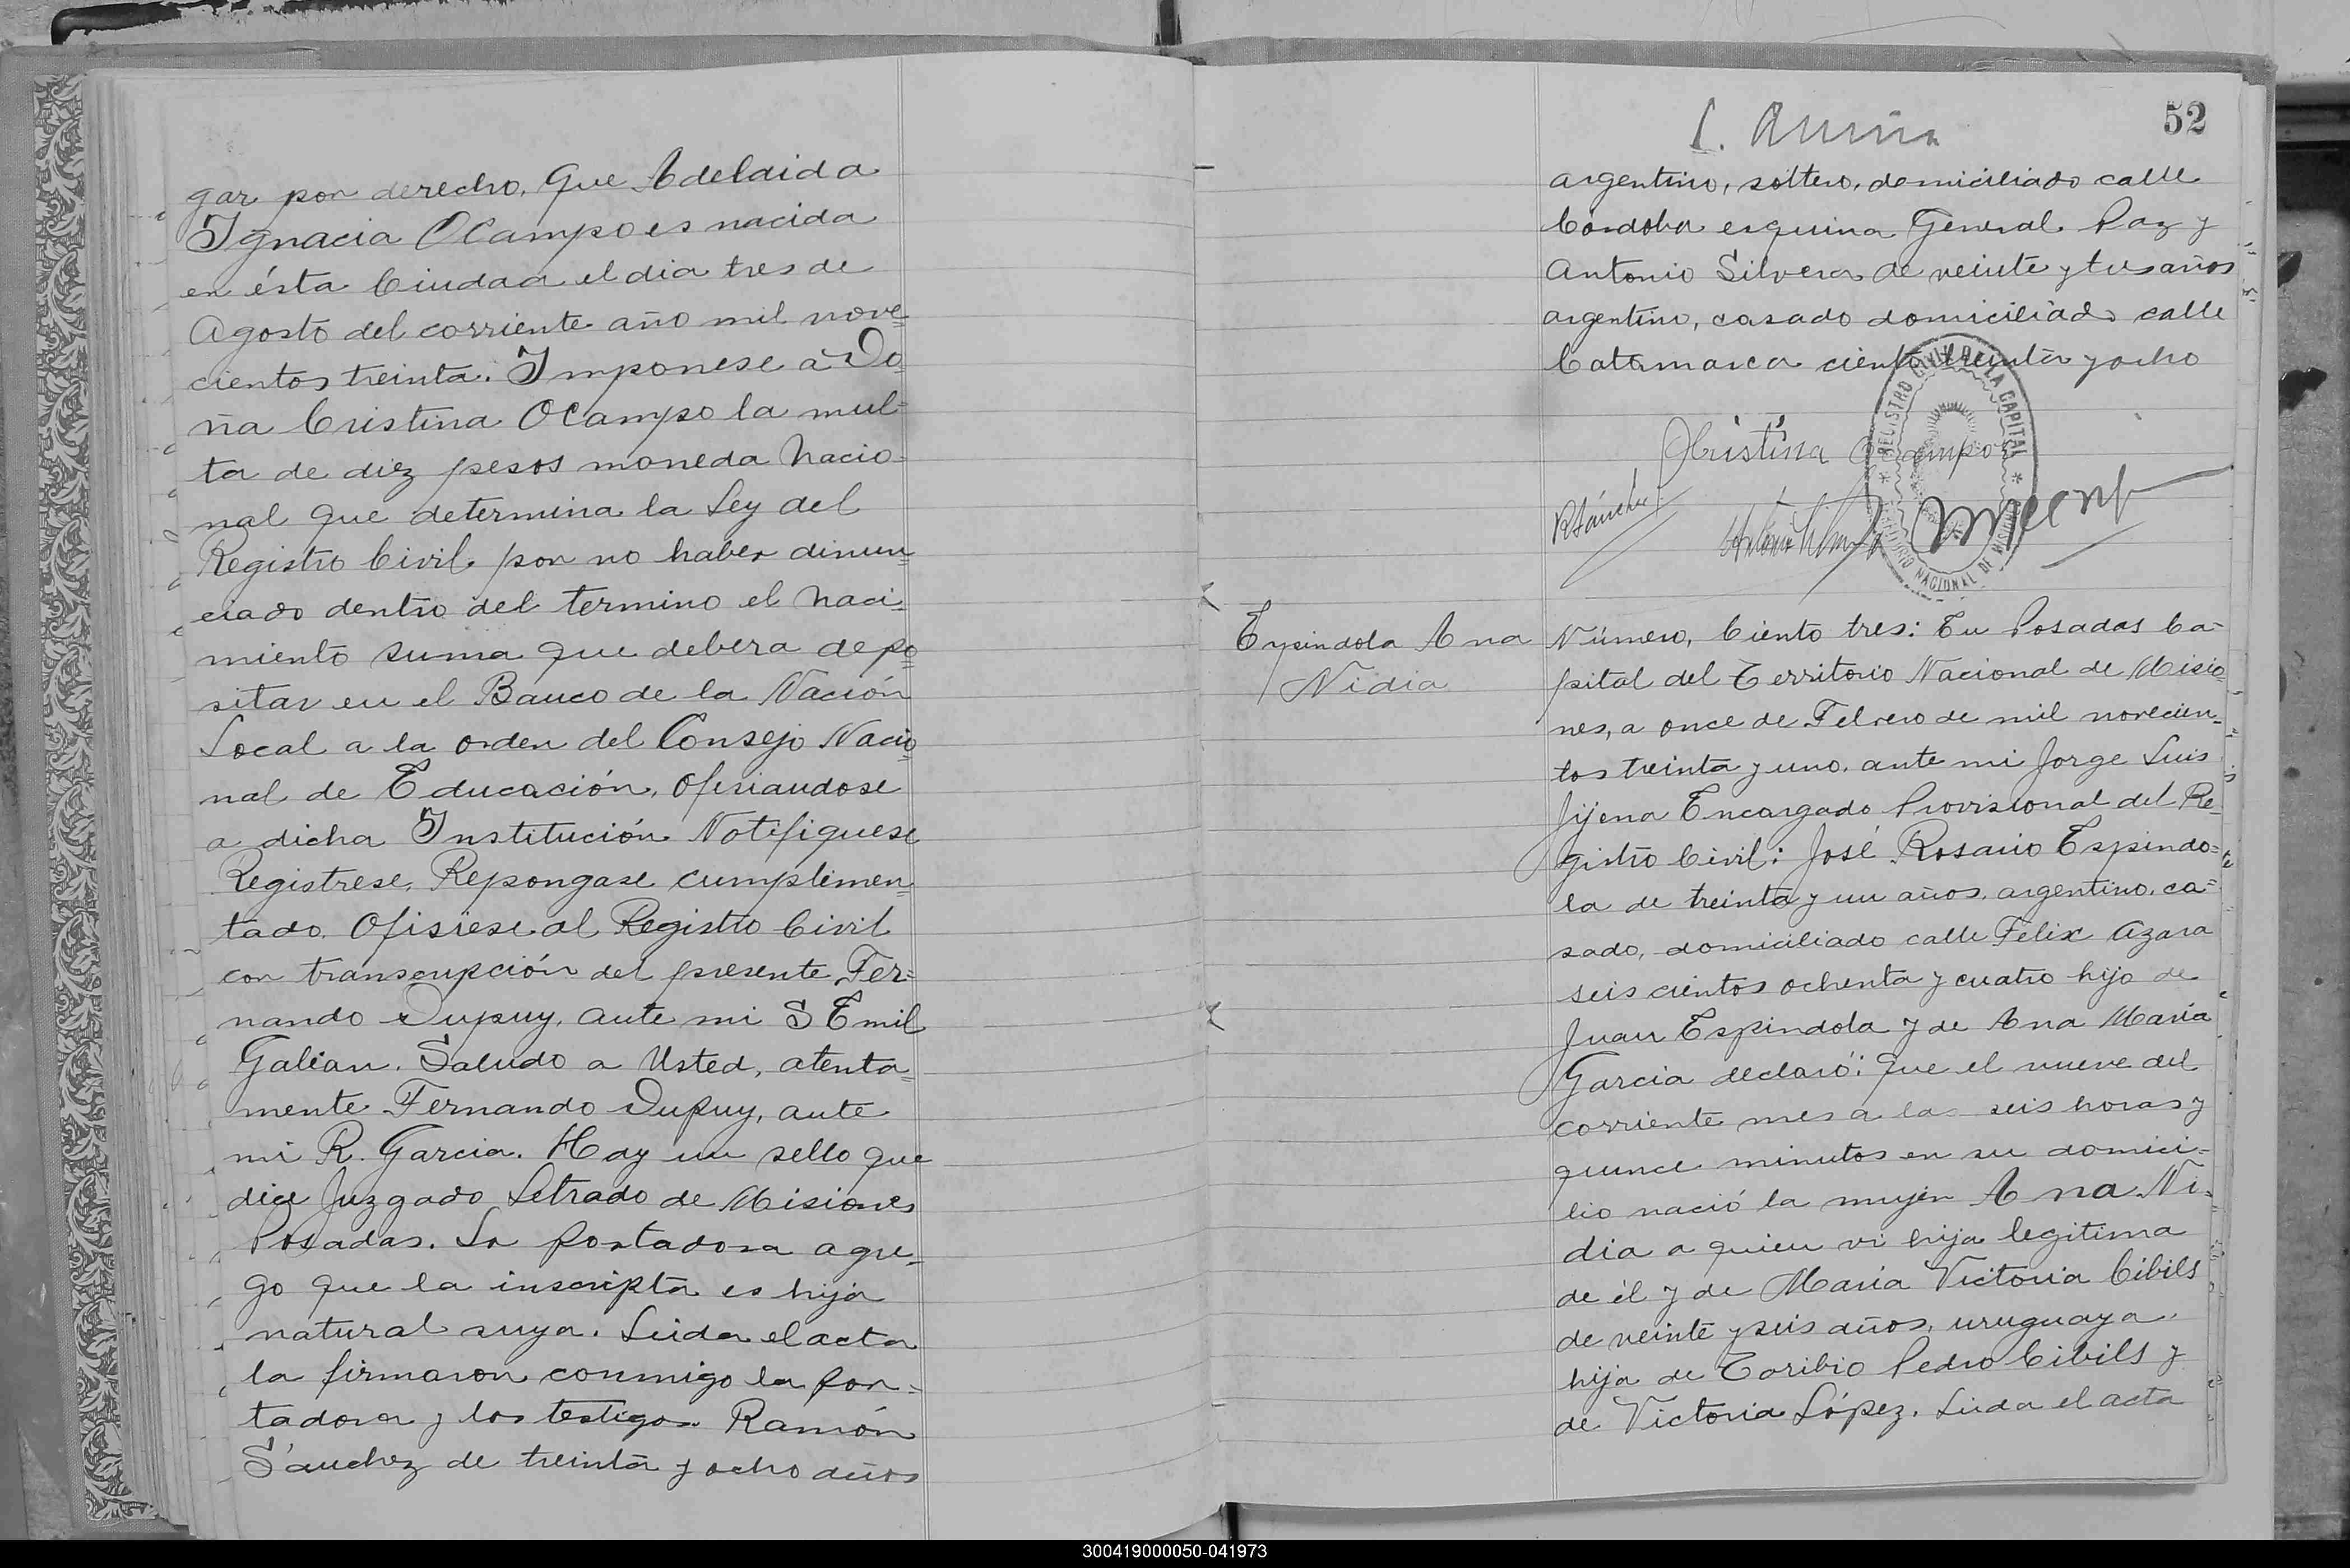 gar por derecho. Que Adelaida
Ignacia Ocampo es nacida
en ésta Ciudad el dia tres de
Agosto del corriente año mil nove=
cientos treinta. Imponese a Do=
ña Cristina Ocampo la mul=
ta de diez pesos moneda Nacio=
nal que determina la Ley del
Registro Civil por no haber dinun=
ciado dentro del termino el naci=
miento suma que debera depo=
sitar en el Banco de la Nación
Local a la orden del Consejo Nacio=
nal de Educación, ofisiandose
a dicha Institución Notifiquese
Registrese, Repongase cumplimen=
tado. Ofisiese al Registro Civil
con transcripción del presente Fer=
nando Dupuy, ante mi S Emil
Galian. Saludo a Usted, atenta=
mente Fernando Dupuy, ante
mi R. Garcia. Hay un sello que
dice Juzgado Letrado de Misiones
Posadas. La portadora agre=
go que la inscripta es hija
natural suya. Leida el acta
la firmaron conmigo la por=
tadora y los testigos. Ramón
Sánchez de treinta y ocho años
52
argentino, soltero, domiciliado calle
Córdoba esquina General Paz y
Antonio Silvera de veinte y tres años
argentino, casado domiciliado calle
Catamarca ciento treinta y ocho
REGISTRO CIVIL DE LA CAPITAL
TERRITORIO NACIONAL DE MISIONES
Cristina Ocampo
RSánchez
Antonio Silvera
Espindola Ana
Nidia
Número, Ciento tres: En Posadas Ca=
pital del Territorio Nacional de Misio=
nes, a once de Febrero de mil novecien=
tos treinta y uno, ante mi Jorge Luis
Jijena Encargado Provisional del Re=
gistro Civil: José Rosario Espindo=
la de treinta y un años, argentino, ca=
sado, domiciliado calle Félix Azara
seis cientos ochenta y cuatro hijo de
Juan Espindola y de Ana Maria
Garcia declaró: que el nueve del
corriente mes a las seis horas y
quince minutos en su domici=
lio nació la mujer Ana Ni=
dia a quien vi hija legitima
de él y de Maria Victoria Cibils
de veinte y seis años, uruguaya,
hija de Toribio Pedro Cibils y
de Victoria López. Leida el acta
300419000050-041973